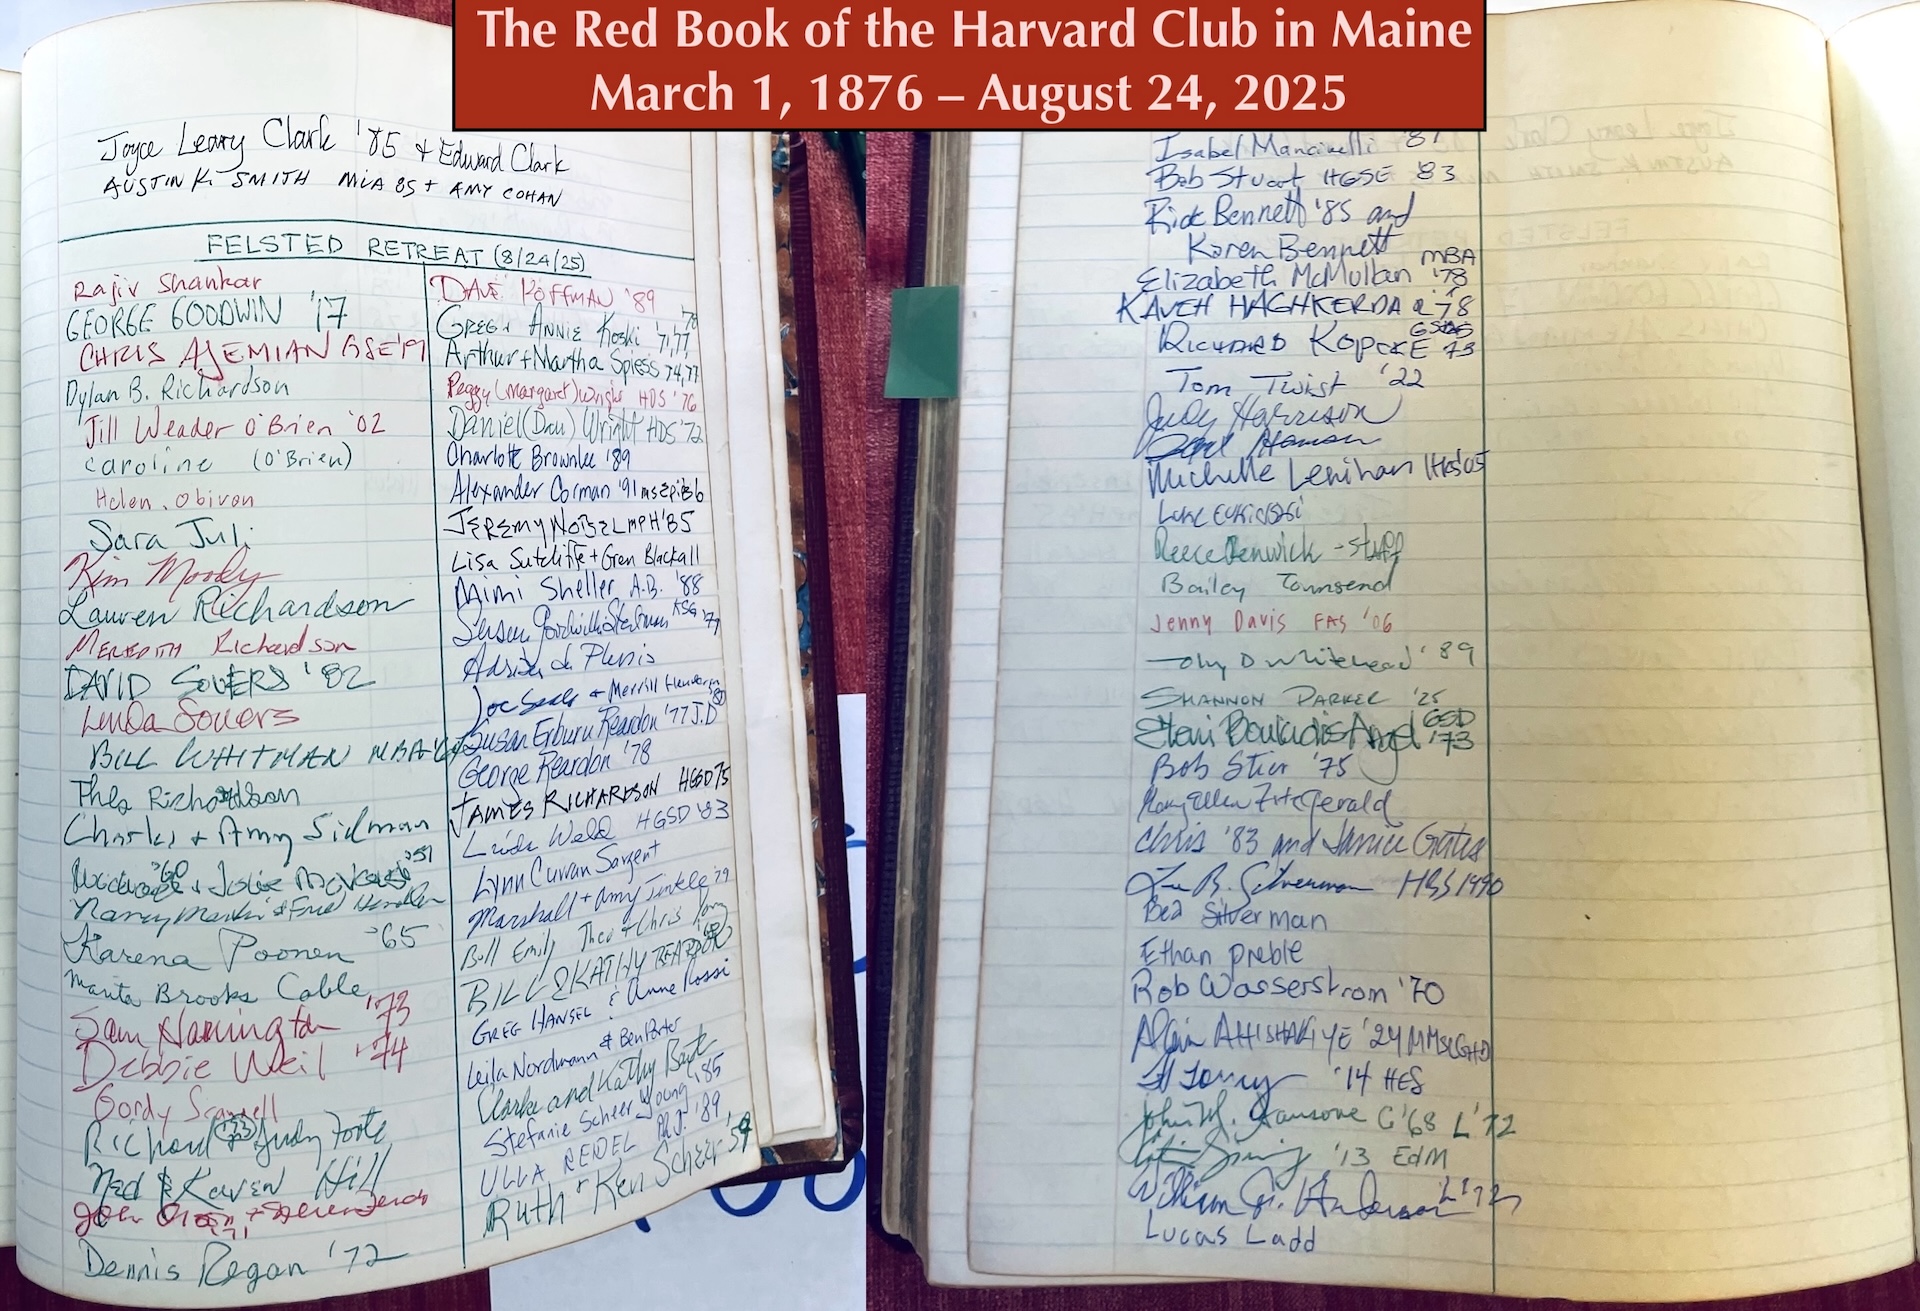 The Red Book of the Harvard Club in Maine
March 1, 1876 – August 24, 2025
Joyce Leary Clark '85 + Edward Clark
AUSTIN K. SMITH MLA 85 + AMY COHAN
FELSTED RETREAT (8/24/25)
Rajiv Shankar
GEORGE GOODWIN '17
CHRIS AJEMIAN GSE'19
Dylan B. Richardson
Jill Weader O'Brien '02
Caroline (O'Brien)
Helen. Obivon
Sara Juli
Kim Moody
Lauren Richardson
MEREDITH Richardson
DAVID SOUERS '82
Linda Souers
BILL WHITMAN MBA
Theo Richardson
Charles + Amy Sidman
'60 '51
+ Josie
Nancy + Fred
Karena Poonen '65
Marita Brooks Cable
Sam Harrington '73
Debbie Weil '74
Gordy Scannell
Richard Judy Foote
Ned & Karen Hill
'71
Dennis Regan '72
DAVE HOFFMAN '89
GREG + ANNIE Koski '71,77 '78
Arthur + Martha Spiess 74,77
Peggy (Margaret) Wright HDS '76
Daniel (Dan) Wright HDS '72
Charlotte Brownlee '89
Alexander Corman '91
JEREMY NOBEL MPH '85
Lisa Sutcliffe + Gren Blackall
Mimi Sheller A.B. '88
Susan Goodwillie Stedman KSG '79
Adrian du Plessis
Joe Seale + Merrill Henderson
Susan Erburu Reardon '77 J.D
George Reardon '78
JAMES RICHARDSON HGSD 75
Linda Weld HGSD '83
Lynn Curran Sargent
Marshall + Amy Tinkle '79
Bill Emily Theo + Chris
BILL & KATHY BEARDSLEY
GREG HANSEL & Anne Rossi
Leila Nordmann & Ben Porter
Clarke and Kathy
Stefanie Scheer Young '85
ULLA REIDEL '89
Ruth + Ken Scheer '59
Isabel Mancinelli '87
Bob Stuart HGSE '83
Rick Bennett '85 and
Karen Bennett
Elizabeth McMullan MBA '78
KAVEH HAGHKERDAR '78
RICHARD KopcKE GSAS 73
Tom Twist '22
Judy Harrison
Michelle Lenihan HKS '05
Luke
Reece Renwick - staff
Bailey Townsend
Jenny Davis FAS '06
John D Whitehead '89
SHANNON PARKER '25
Eleni GSD '73
Bob Stier '75
Mary Ellen FitzGerald
Chris '83 and Janice Gates
Lee B. Silverman HBS 1990
Bea Silverman
Ethan preble
Rob Wasserstrom '70
Alain AHISHAKIYE '24 MMScGHD
'14 HES
John M. Ransome G'68 L'72
'13 EdM
William S. Harwood L'72
Lucas Ladd